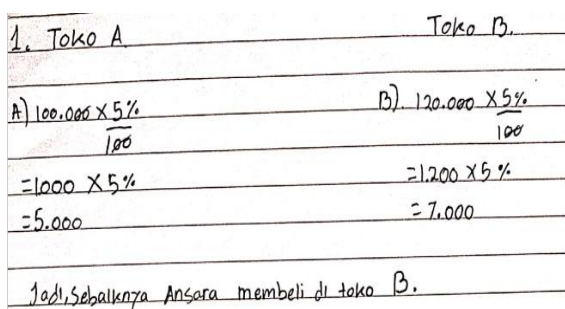 1. Toko A
Toko B.
A) 100.000 X 5%
100
=1000 X 5%
=5.000
B). 120.000 X 5%
100
=1.200 X 5%
=7.000
Jadi, Sebaiknya Ansara membeli di toko B.